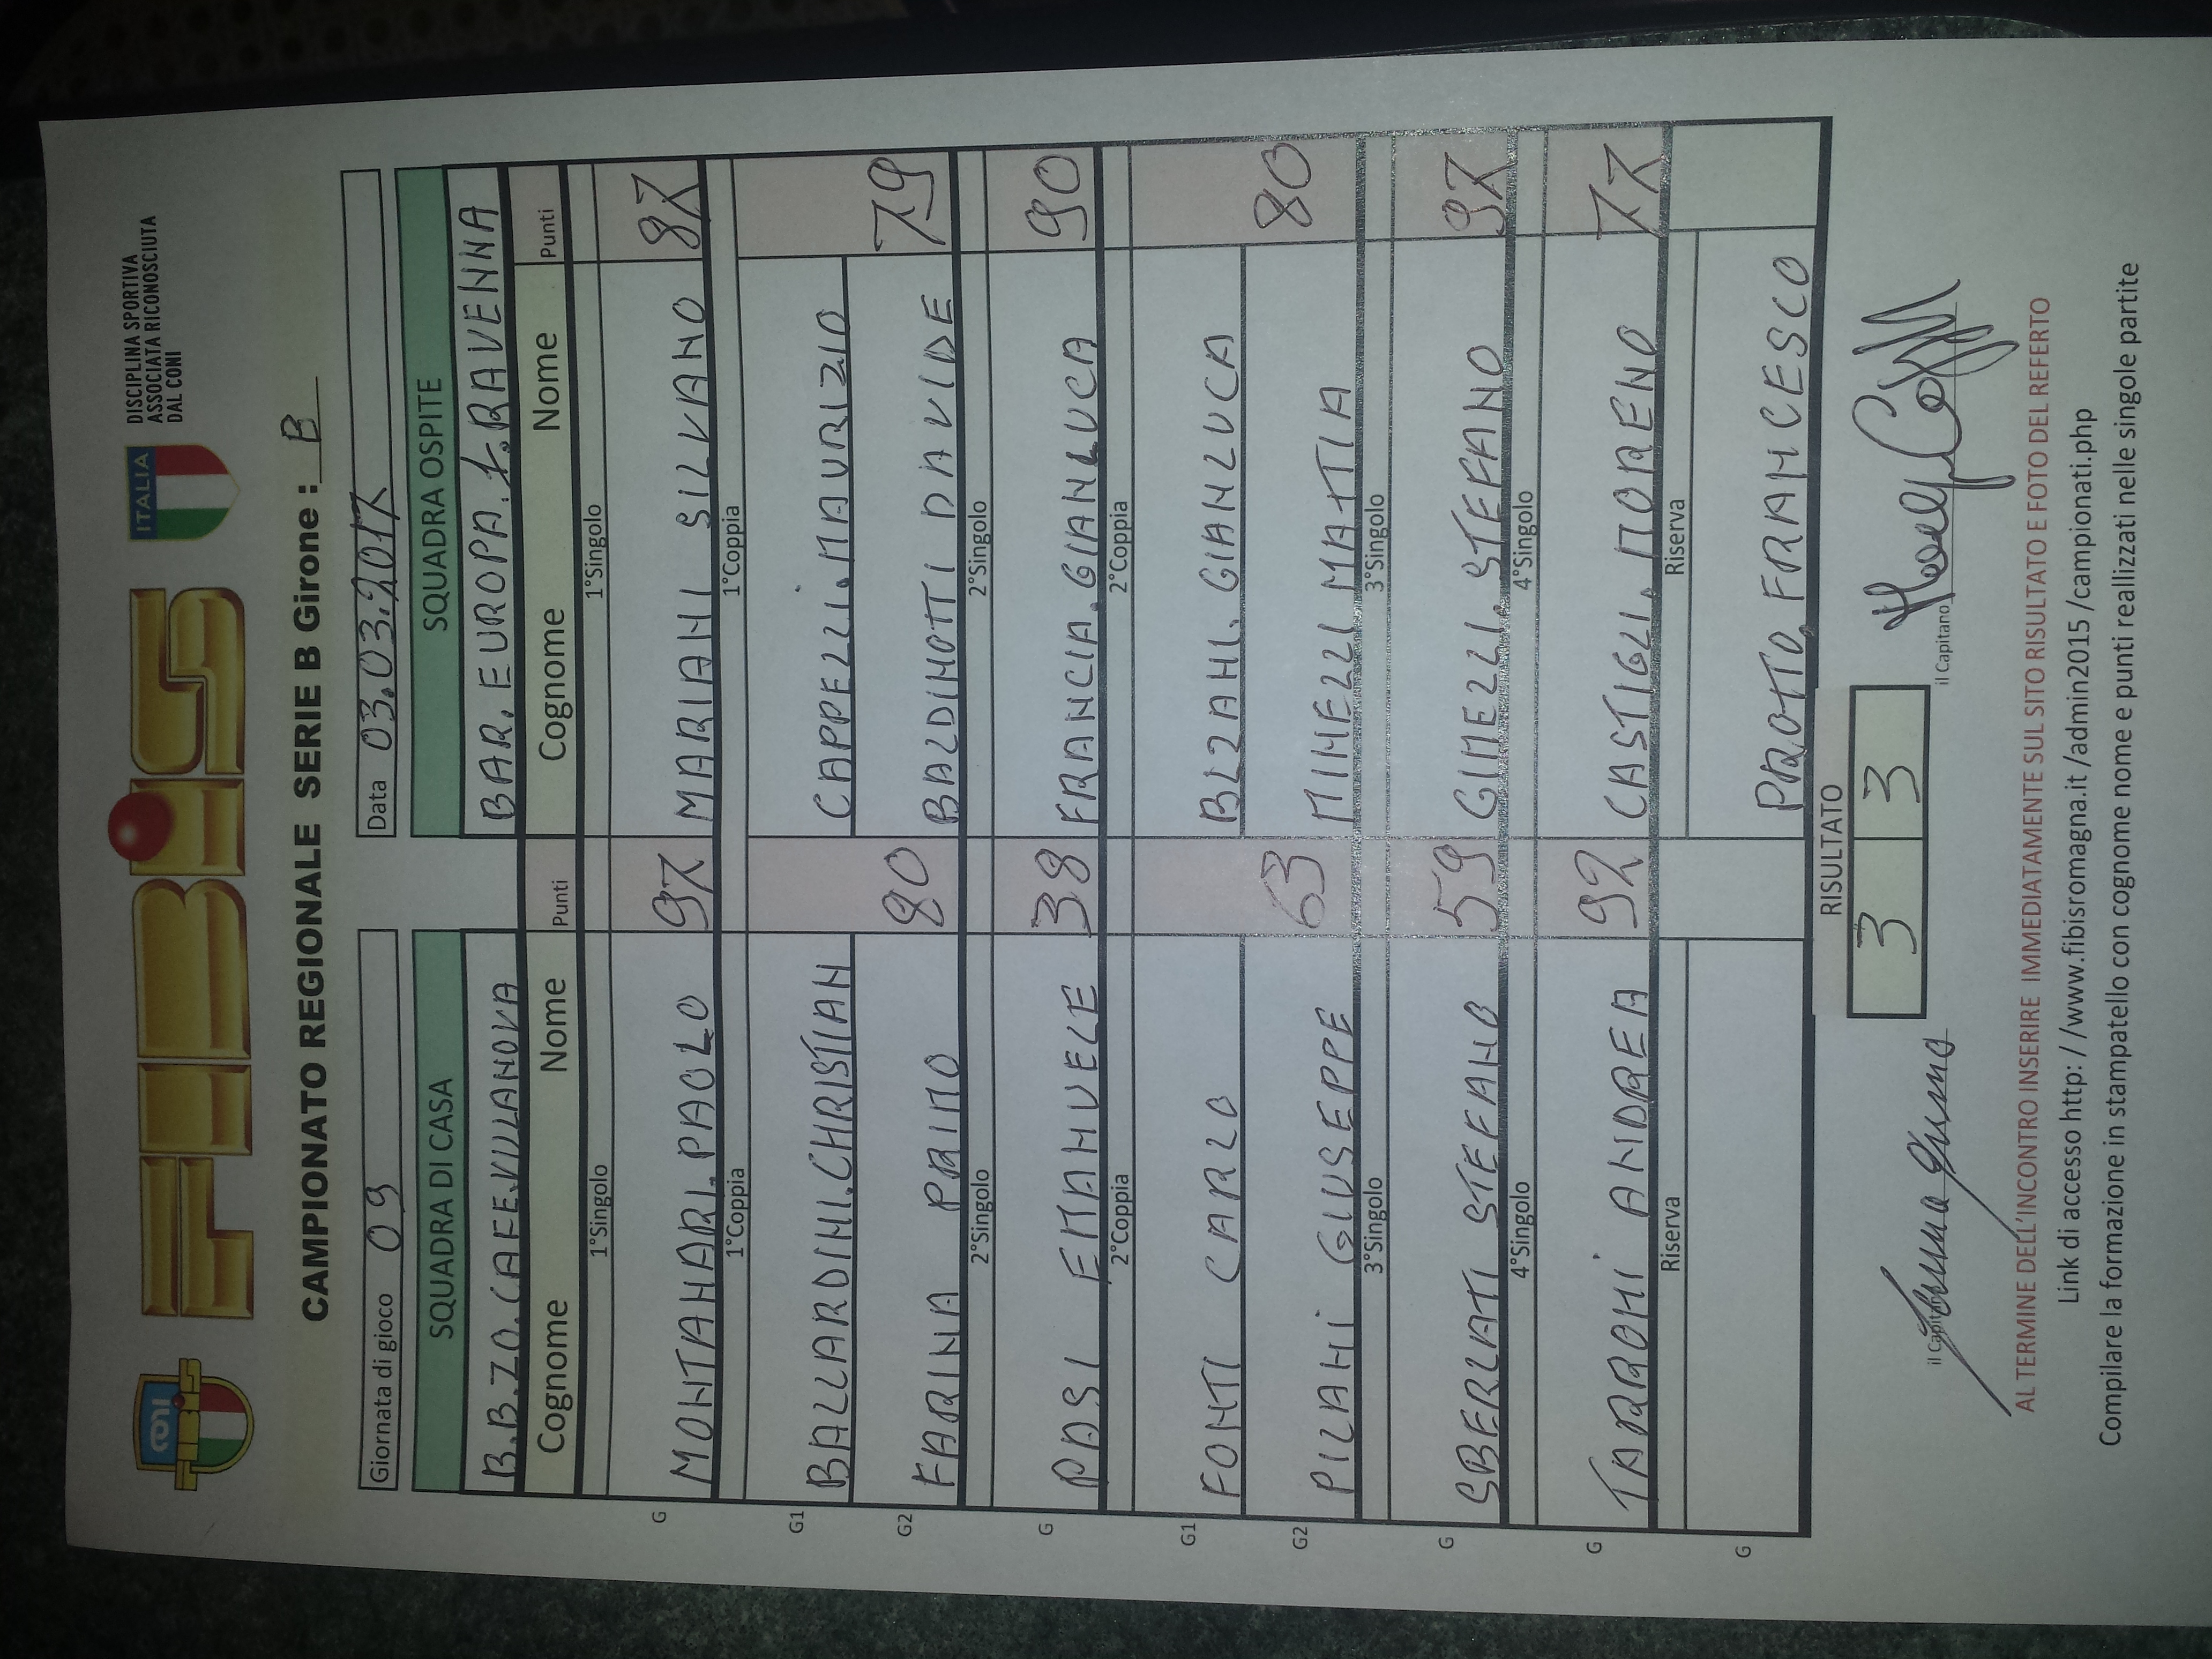 CONI
FIBIS
FIBiS
ITALIA
DISCIPLINA SPORTIVA
ASSOCIATA RICONOSCIUTA
DAL CONI
CAMPIONATO REGIONALE SERIE B Girone : B
Giornata di gioco 09 Data 03.03.2017
SQUADRA DI CASA SQUADRA OSPITE
B.B.ZO.CAFE.VILLANOVA BAR.EUROPA.F.RAVENNA
Cognome Nome Punti Cognome Nome Punti
1°Singolo 1°Singolo
G MONTANARI.PAOLO 97 MARIANI SILVANO 87
1°Coppia 1°Coppia
G1 BALLARDINI.CHRISTIAN CAPPELLI.MAURIZIO
G2 FARINA PRIMO 80 BALDINOTTI DAVIDE 79
2°Singolo 2°Singolo
G PASI EMANUELE 38 FRANCIA.GIANLUCA 90
2°Coppia 2°Coppia
G1 FONTI CARLO BLZANI.GIANLUCA
G2 PILANI GIUSEPPE 63 MINELLI MATTIA 80
3°Singolo 3°Singolo
G SBERLATI STEFANO 59 GIMELLI.STEFANO 97
4°Singolo 4°Singolo
G TARRONI ANDREA 92 CASTIGLI.MORENO 77
Riserva Riserva
G PROTTO,FRANCESCO
RISULTATO
3 3
il Capitano il Capitano
AL TERMINE DELL'INCONTRO INSERIRE IMMEDIATAMENTE SUL SITO RISULTATO E FOTO DEL REFERTO
Link di accesso http: / /www.fibisromagna.it /admin2015 /campionati.php
Compilare la formazione in stampatello con cognome nome e punti reallizzati nelle singole partite